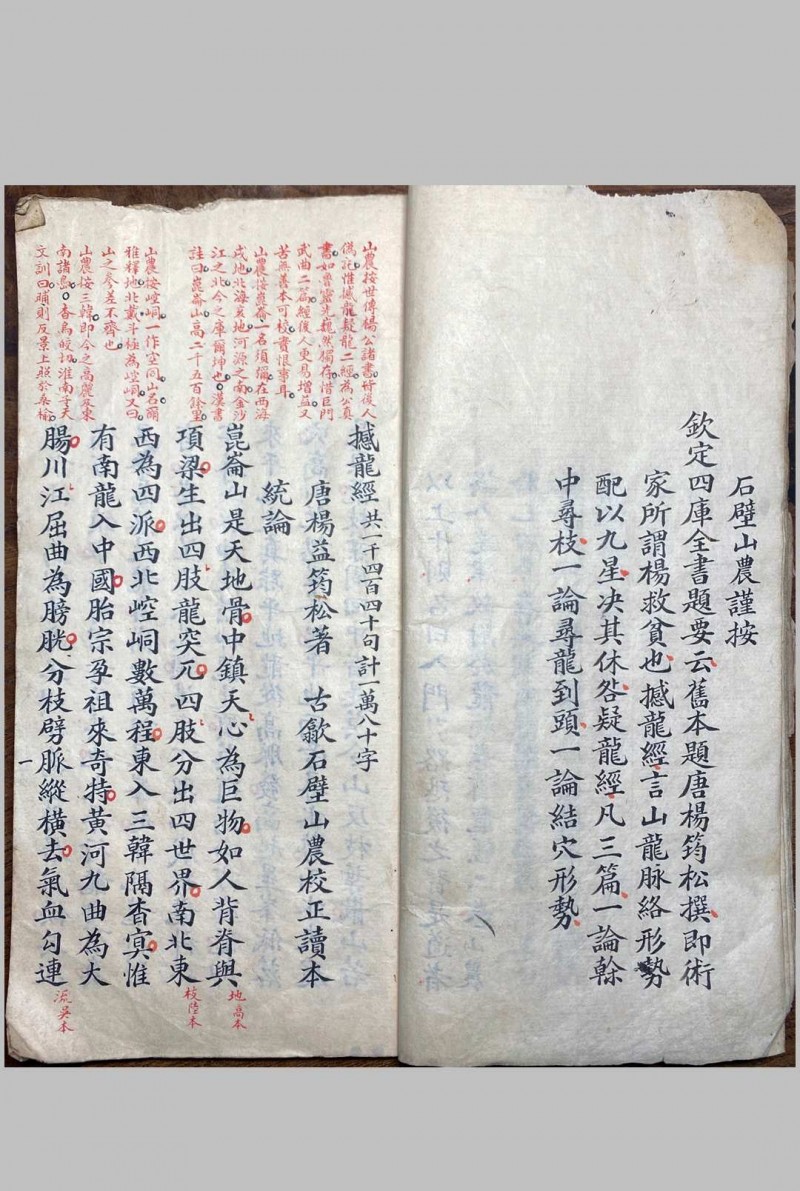 石壁山農謹按
欽定四庫全書題要云舊本題唐楊筠松撰即術
家所謂楊救貧也撼龍經言山龍脉絡形勢
配以九星决其休咎疑龍經凡三篇一論榦
中尋枝一論尋龍到頭一論結穴形勢
山農按世傳楊公諸書所後人
偽託惟撼龍疑龍二經為公真
書如魯靈光巍然獨存惜巨門
武曲二篇經後人更易增益又
苦無善本可校實恨事耳
山農按崑崙一名須彌在西海
戌地北海亥地河源之南金沙
江之北今之庫爾坤也漢書
註曰崑崙山高二千五百餘里
山農按崆峒一作空同山名爾
雅釋地北戴斗極為崆峒又曰
山之參差不齊也
山農按三韓即今之高麗及東
南諸島杳烏皎切淮南子天
文訓曰晡則反景上照於桑榆
撼龍經共一千四百四十句計一萬八十字
唐楊益筠松著 古歙石壁山農校正讀本
統論
崑崙山是天地骨中鎮天心為巨物如人背脊與
地高本
項梁生出四肢龍突兀四肢分出四世界南北東
枝陸本
西為四派西北崆峒數萬程東入三韓隔杳冥惟
有南龍入中國胎宗孕祖來奇特黃河九曲為大
腸川江屈曲為膀胱分枝劈脈縱橫去氣血勾連
流吳本
一